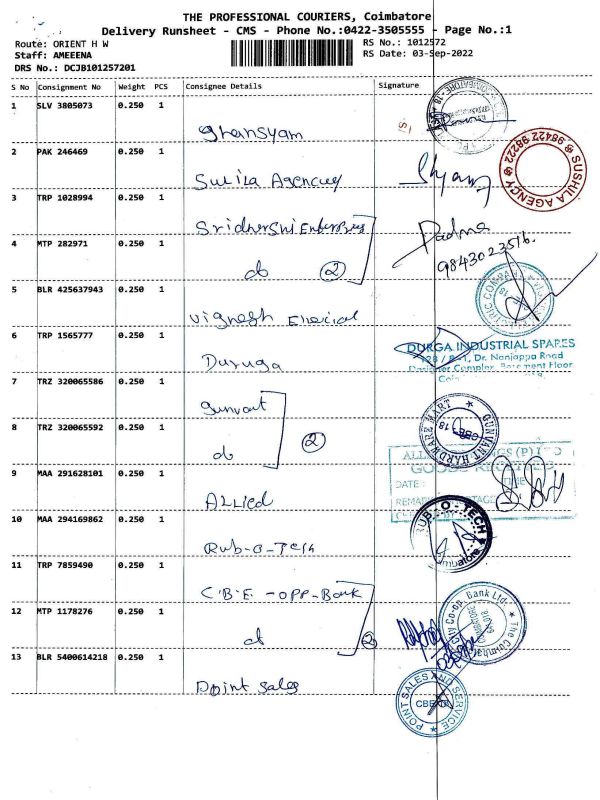 THE PROFESSIONAL COURIERS, Coimbatore
Delivery Runsheet - CMS - Phone No.:0422-3505555 - Page No.:1
Route: ORIENT H W
RS No.: 1012572
Staff: AMEEENA
RS Date: 03-Sep-2022
DRS No.: DCJB101257201
S No Consignment No Weight PCS Consignee Details Signature
1 SLV 3805073 0.250 1
Ghansyam
2 PAK 246469 0.250 1
Sulila Agencuy
Shyam
SUSHILA AGENCY 98422 98222
3 TRP 1028994 0.250 1
Sridhershi Enterprises
Padma
9843023516.
4 MTP 282971 0.250 1
do 2
5 BLR 425637943 0.250 1
Vignesh Elecical
6 TRP 1565777 0.250 1
Duruga
DURGA INDUSTRIAL SPARES
Dr. Nanjappa Road
Complex, Basement Floor
7 TRZ 320065586 0.250 1
Gunvant
GUNVANT HARDWARE MART
8 TRZ 320065592 0.250 1
do 2
9 MAA 291628101 0.250 1
Allied
GOODS RECEIVED
DATE:
10 MAA 294169862 0.250 1
Rub-o-Tech
RUB-O-TECH
11 TRP 7859490 0.250 1
C.B.E - opp - Bank
12 MTP 1178276 0.250 1
do 2
City Co-op. Bank Ltd.
13 BLR 5400614218 0.250 1
Point Sales
POINT SALES AND SERVICE